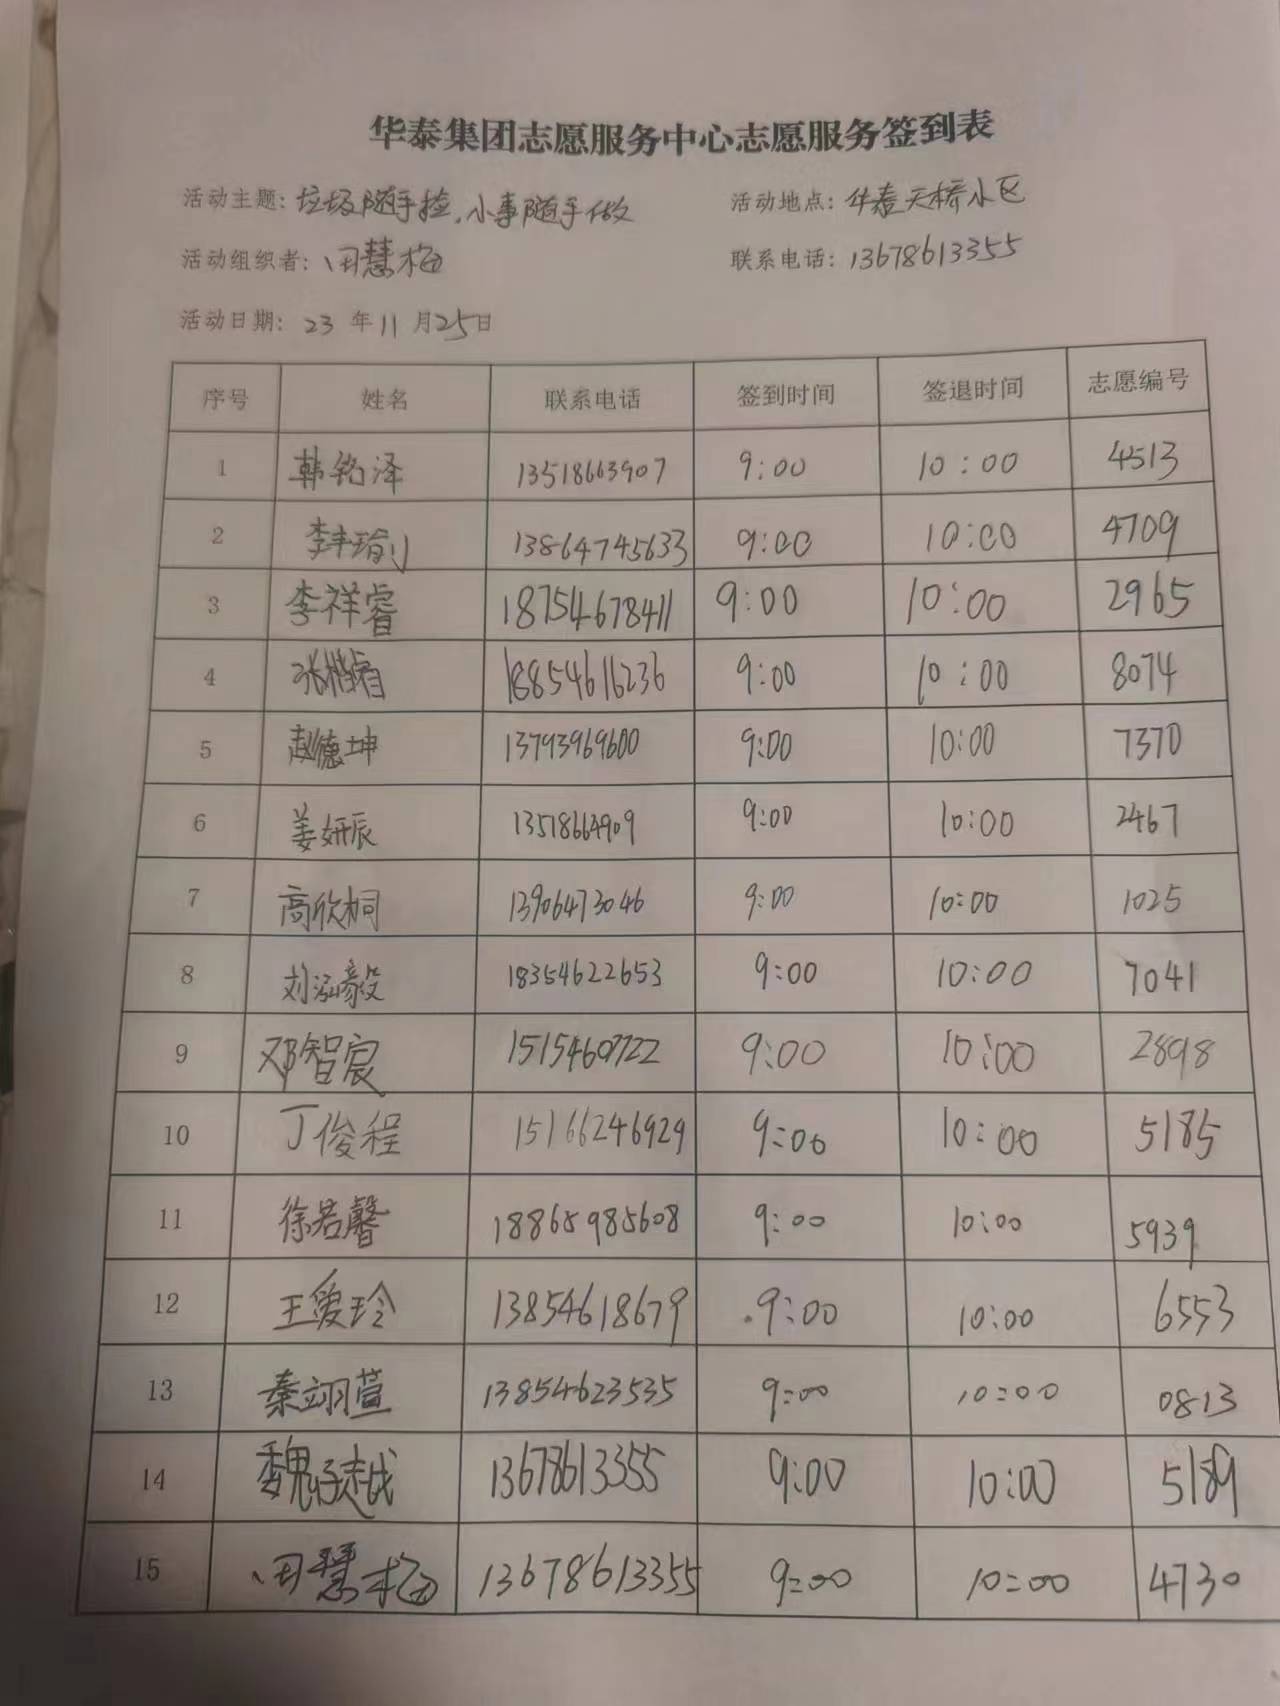 华泰集团志愿服务中心志愿服务签到表
活动主题: 垃圾随手捡,小事随手做 活动地点: 华泰天桥小区
活动组织者: 田慧梅 联系电话: 13678613355
活动日期: 23 年 11 月 25 日
序号 姓名 联系电话 签到时间 签退时间 志愿编号
1 韩铭泽 13518663907 9:00 10:00 4513
2 13864745633 9:00 10:00 4709
3 李祥睿 18754678411 9:00 10:00 2965
4 18854616236 9:00 10:00 8074
5 赵德坤 13793969600 9:00 10:00 7370
6 姜妍辰 13518664909 9:00 10:00 2467
7 高欣桐 13906473046 9:00 10:00 1025
8 刘泓毅 18354622653 9:00 10:00 7041
9 邓智宸 15154607722 9:00 10:00 2898
10 丁俊程 15166246929 9:00 10:00 5185
11 徐若馨 18865985608 9:00 10:00 5939
12 王爱玲 13854618679 9:00 10:00 6553
13 秦翊萱 13854623535 9:00 10:00 0813
14 魏子越 13678613355 9:00 10:00 5189
15 田慧梅 13678613355 9:00 10:00 4730